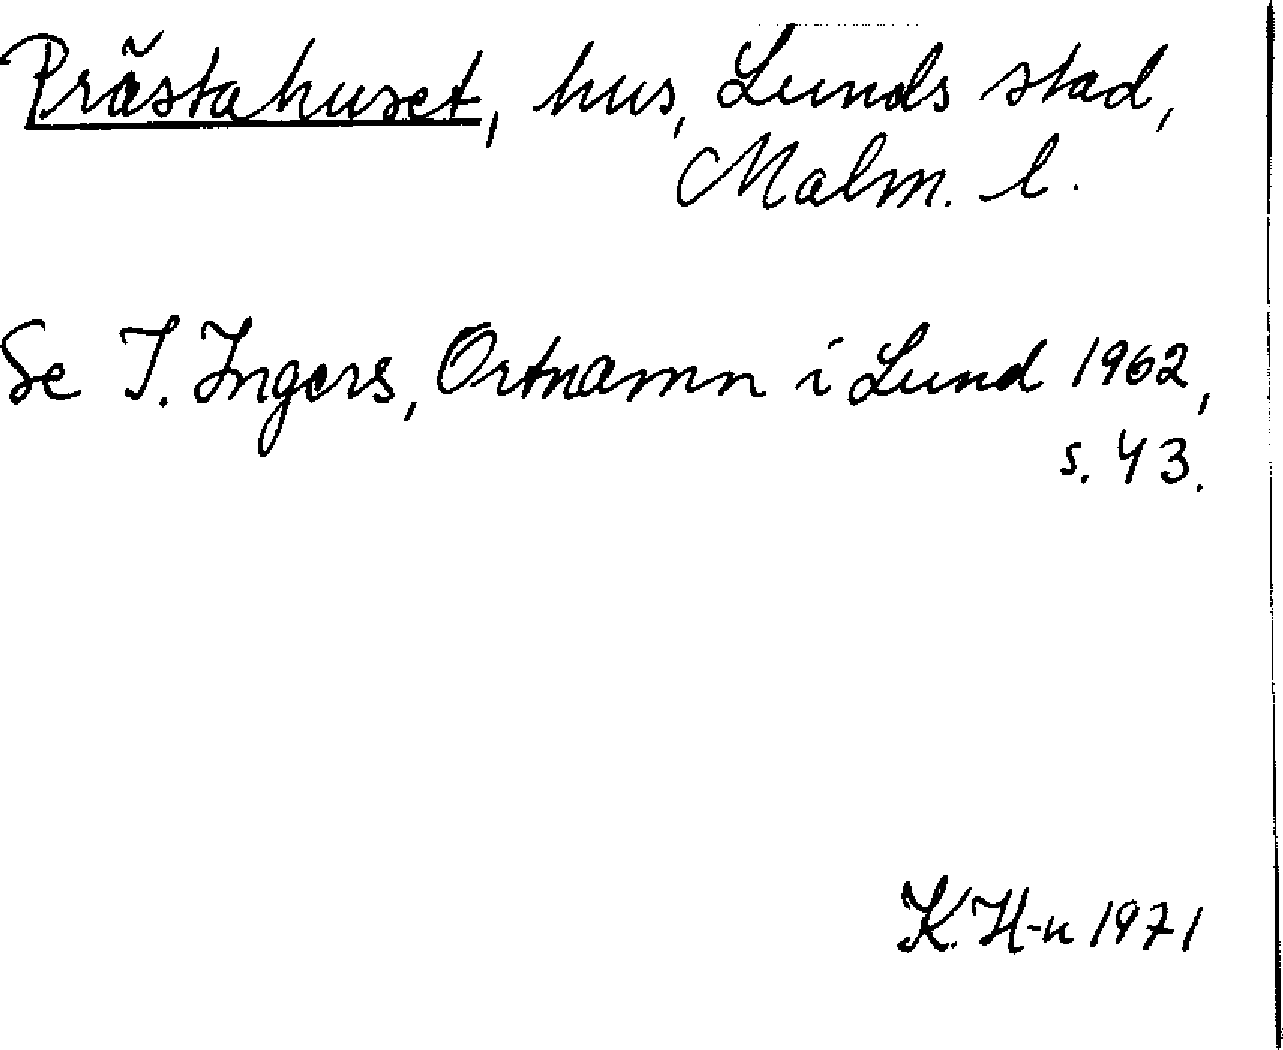 Prästahuset, hus, Lunds stad,
Malm. l.
Se I. Ingers, Ortnamn i Lund 1962,
s. 43.
K. H-n 1971